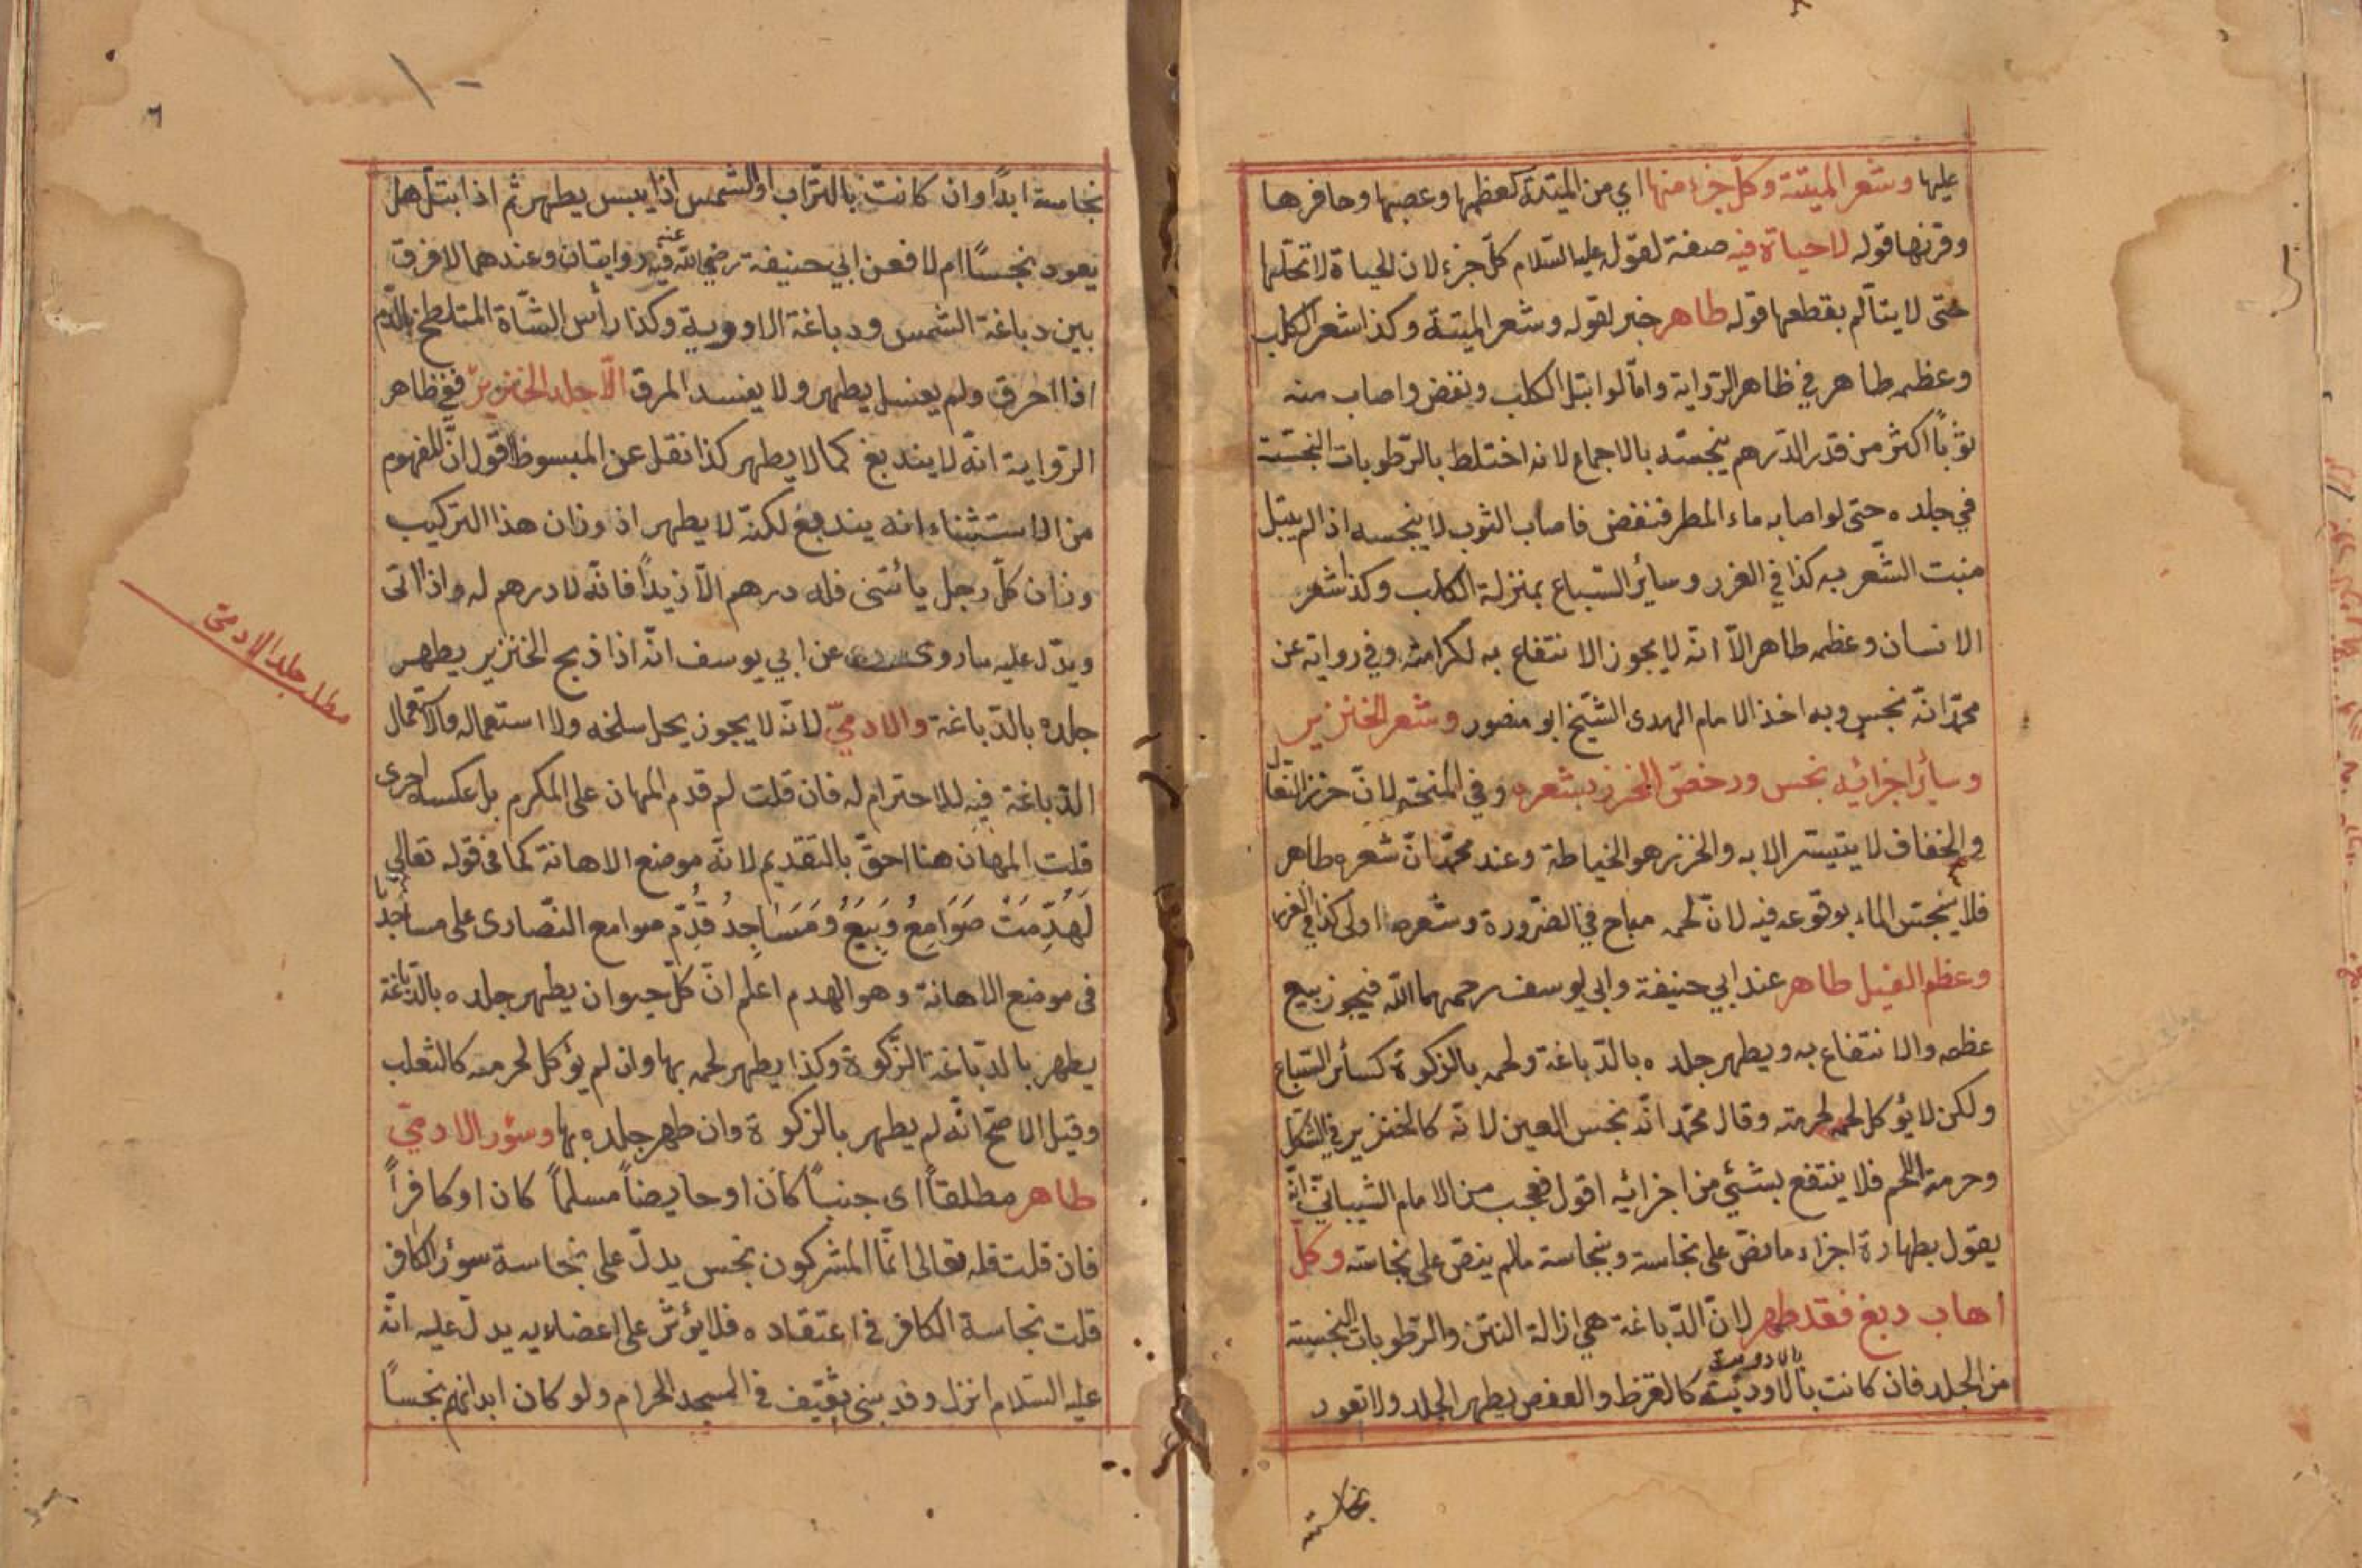 عليها وشعر الميتة وكل جزء منها اي من الميتة كعظمها وعصبها وحافرها
وقرنها قوله لا حياة فيه صفة لقوله عليه السلام كل جزء لان الحياة لا تحلها
حتى لا يتألم بقطعها قوله طاهر خبر لقوله وشعر الميتة وكذا شعر الكلب
وعظمه طاهر في ظاهر الرواية وامّا لو ابتل الكلب ونفض واصاب منه
ثوباً اكثر من قدر الدرهم ينجسه بالاجماع لانه اختلط بالرّطوبات النجسة
في جلده حتى لو اصابه ماء المطر فنفض فاصاب الثوب لا ينجسه اذا لم يبتل
منبت الشّعر به كذا في الغرر وسائر السّباع بمنزلة الكلب وكذا شعر
الانسان وعظمه طاهر الاّ انّه لا يجوز الانتفاع به لكرامته وفي رواية عن
محمّد انّه نجس وبه اخذ الامام الهدى الشّيخ ابو منصور وشعر الخنزير
وسائر اجزائه نجس ورخصّ الخرز بشعره وفي المنحة لانّ خرز النعال
والخفاف لا يتيسّر الا به والخرز هو الخياطة وعند محمّد انّ شعره طاهر
فلا ينجس الماء بوقوعه فيه لانّ لحمه مباح في الضّرورة وشعره اولى كذا في الغرر
وعظم الفيل طاهر عند ابي حنيفة وابي يوسف رحمهما اللّه فيجوز بيع
عظمه والانتفاع به ويطهر جلده بالدّباغة ولحمه بالزكوة كسائر السّباع
ولكن لا يؤكل لحمه لحرمته وقال محمّد انّه نجس العين لانّه كالخنزير في الشكل
وحرمة اللحم فلا ينتفع بشئي من اجزائه اقول فعجب من الامام الشيبانيّ انّه
يقول بطهارة اجزاء ما نصّ على نجاسة وبنجاسة ما لم ينصّ على نجاسته وكل
اهاب دبغ فقد طهر لانّ الدّباغة هي ازالة النتن والرّطوبات النجسية
بالادوية
من الجلد فان كانت بالاودية كالقرظ والعفص يطهر الجلد ولا تعود
نجاسته
نجاسة ابداً وان كانت بالتّراب او الشمس اذا يبس يطهر ثم اذا ابتل هل
يعود نجساً ام لا فعن ابي حنيفة رضي اللّه عنه فيه روايتان وعندهما لا فرق
بين دباغة الشمس ودباغة الاودوية وكذا رأس الشّاة المتلطخ بالدّم
اذا احرق ولم يغسل يطهر ولا يفسد المرق الاّ جلد الخنزير ففي ظاهر
الرّواية انّه لا يندبغ كما لا يطهر كذا نقل عن المبسوط اقول انّ المفهوم
من الاستثناء انه يندبغ لكنّه لا يطهر اذ وزان هذا التركيب
وزان كلّ رجل يأتني فله درهم الاّ زيداً فانّه لا درهم له واذا اتى
ويدّل عليه ما روى عن ابي يوسف انّه اذا ذبح الخنزير يطهر
جلده بالدّباغة والادميّ لانّه لا يجوز يحل سلخه ولا استعماله
الدّباغة فيه للاحترام له فان قلت لم قدم المهان على المكرم بل عكسه احرى
قلت المهان هنا احقّ بالتقديم لانّه موضع الاهانة كما في قوله تعالى
لَهُدِّمَتْ صَوَامِعُ وَبِيَعُ وَمَسَاجِدُ قُدِّم صوامع النّصارى على مساجدنا
في موضع الاهانة وهو الهدم اعلم انّ كلّ حيوان يطهر جلده بالدّباغة
يطهر بالدّباغة الزّكوة وكذا يطهر لحمه بها وان لم يؤكل لحرمته كالثعلب
وقيل الاصحّ انّه لم يطهر بالزكوة وان طهر جلده بها وسؤر الادميّ
طاهر مطلقاً اى جنباً كان او حايضاً مسلماً كان او كافراً
فان قلت قله تعالى انّما المشركون نجس يدلّ على نجاسة سؤر الكافر
قلت نجاسة الكافر في اعتقاده فلا يؤثّر على اعضايه يدلّ عليه انّه
عليه السّلام انزل وفد بنى ثقيف في المسجد الحرام ولو كان ابدانهم نجساً
مطلب جلد الادمي